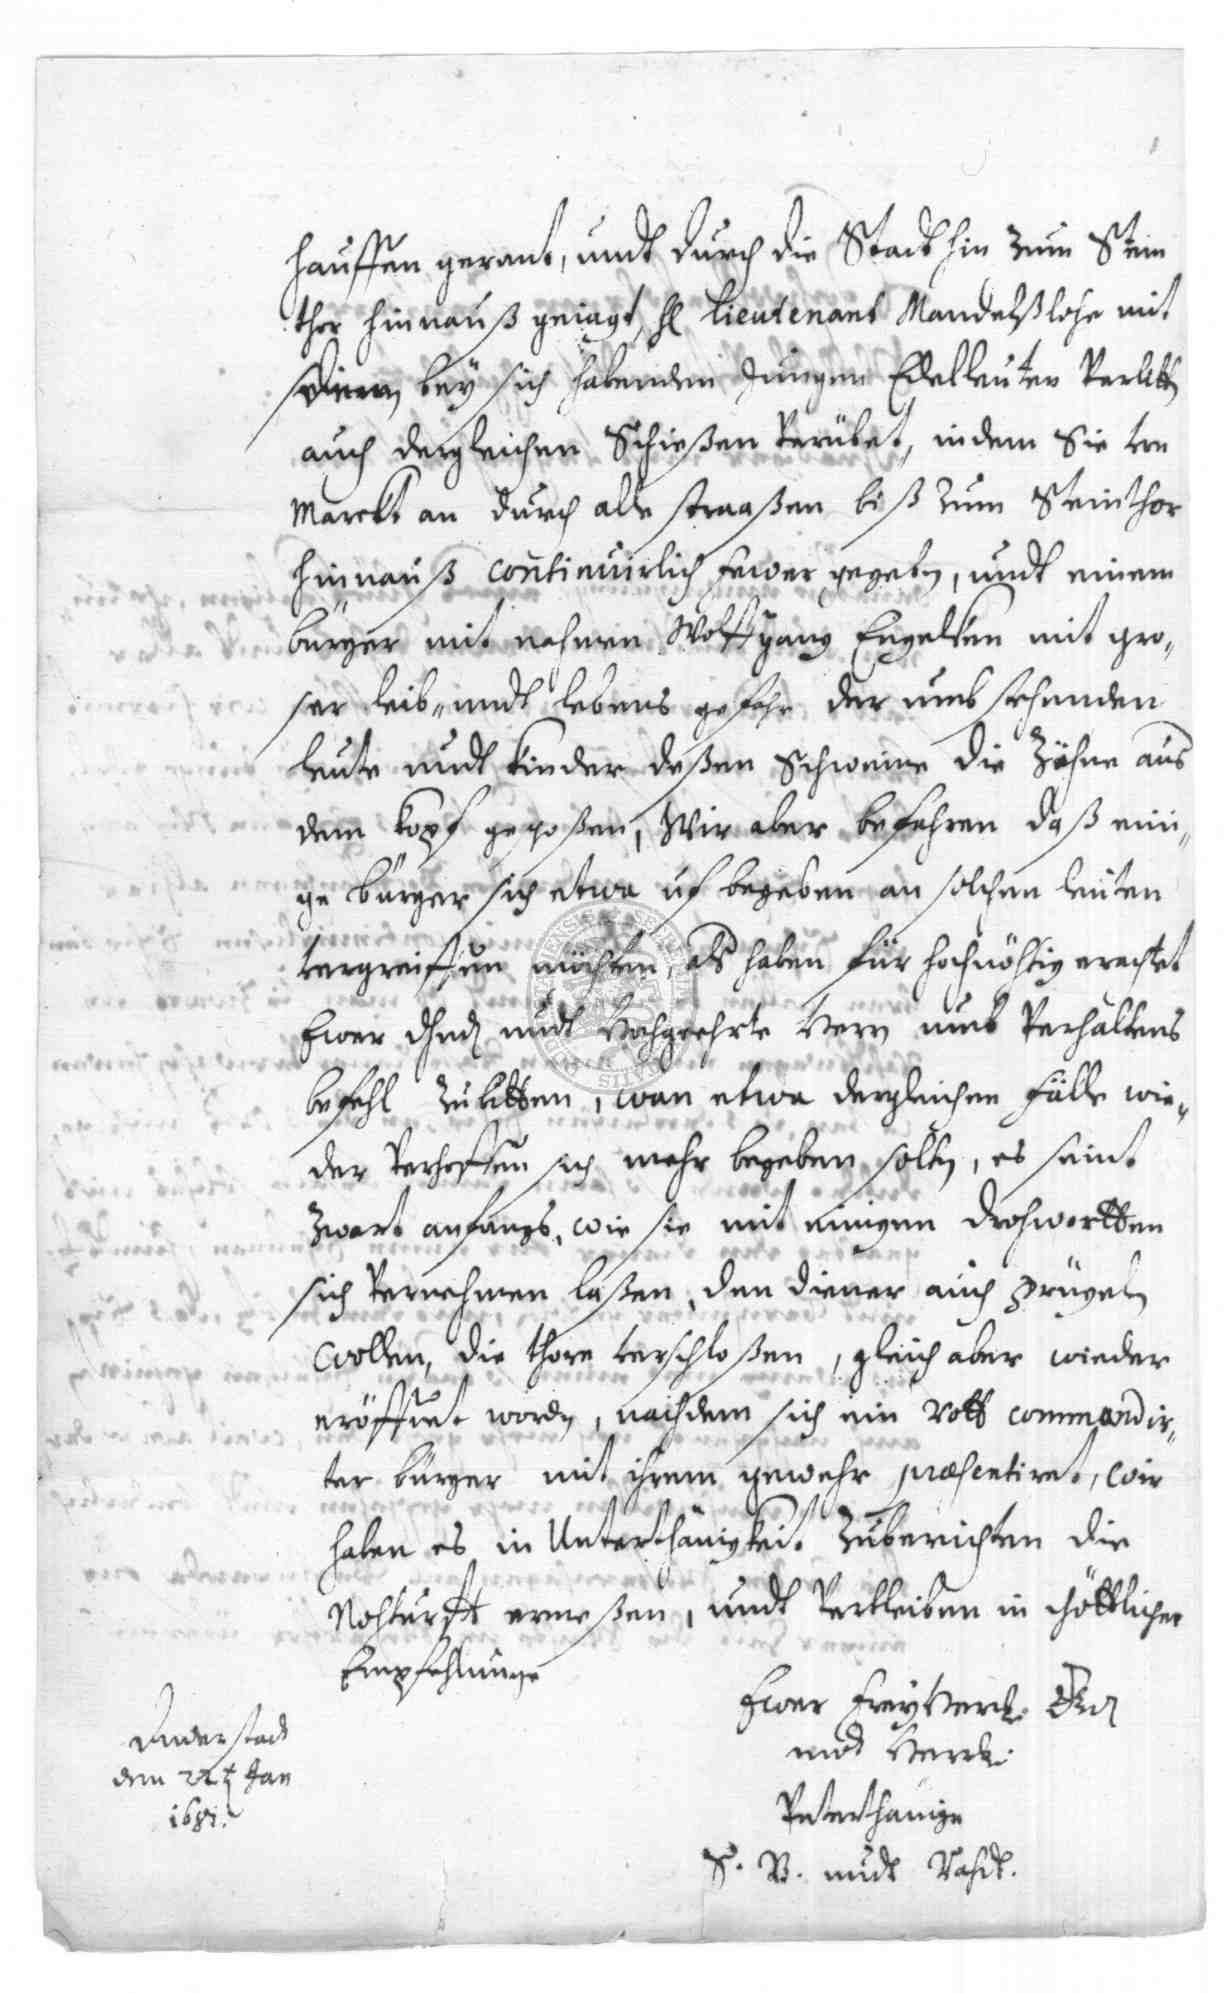 hauffen gerant, undt durch die Stadt hin zum Stein
thor hinnauß gejagt, H Lieutenant Mandelßlohe mit
seinen bey sich habenden Jungen Edelleuten
auch dergleichen Schießen verübet, indem Sie von
Marckt an durch alle straaßen biß zum Steinthor
hinnauß continuirlich fewer gegeben, undt einem
bürger mit nahmen Wolffgang Engelken mit gro-
ser leib- undt lebens gefahr der umbstehenden
leute undt kinder deßen Schweine die Zähne aus
dem kopf geschoßen, Wir aber befahren daß eini-
ge bürger sich etwa uf begeben an solchen leuten
vergreiffen möchten, als haben für hochnöhtig erachtet
Ewer undt Hochgeehrte Herrn umb verhaltens
befehl zu bitten, wan etwa dergleichen Fälle wie-
der verhoffen sich mehr begeben solten, es seint
zwart anfangs, wie sie mit einigen drohwortten
sich vernehmen laßen, den diener auch prügeln
wollen, die thore verschloßen, gleich aber wieder
eröffnet worden, nachdem sich ein Rott commandir-
ter bürger mit ihrem gewehr præsentiret, wir
haben es in Unterthänigkeit zuberichten die
Nohturfft ermeßen, undt verbleiben in Göttlicher
Empfehlunge
Duderstadt
den 22t Jan
Ewer
undt Herrl.
Unterthänige
S. B. undt Raht.